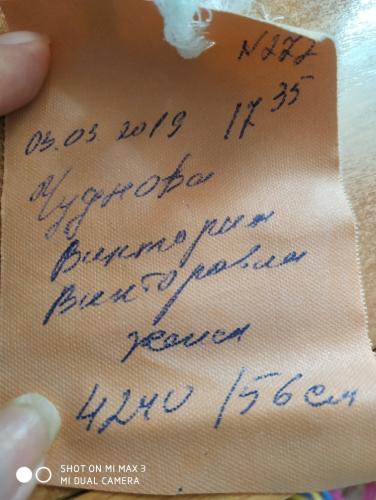 N 272
03.03.2019 17 35
Чуднова
Виктория
Викторовна
женск
4240 /56 см
SHOT ON MI MAX 3
MI DUAL CAMERA